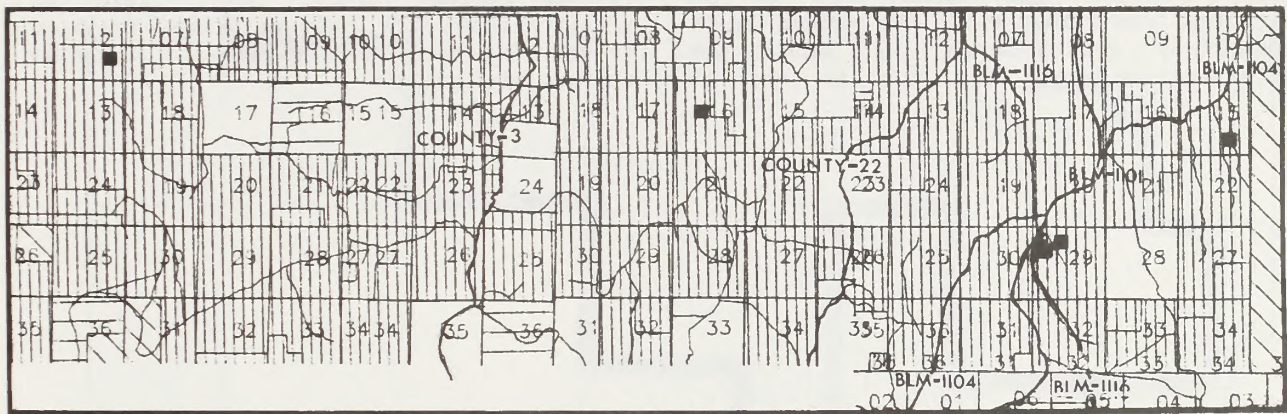 11 2 07 08 09 10 10 11 12 07 08 09 10 11 12 07 08 09 10
BLM-1116 BLM-1104
14 13 18 17 16 15 15 14 13 18 17 16 15 14 13 18 16 15
COUNTY-3
COUNTY-22 BLM-1101
23 24 19 20 21 22 22 23 24 19 20 21 22 23 24 19 21 22
26 25 30 29 28 27 27 26 25 30 29 28 27 26 25 30 29 28 27
35 36 31 32 33 34 34 35 36 31 32 33 34 35 36 31 32 33 34
36 36 31 32 33 34
BLM-1104 BLM-1116
02 01 06 05 04 03